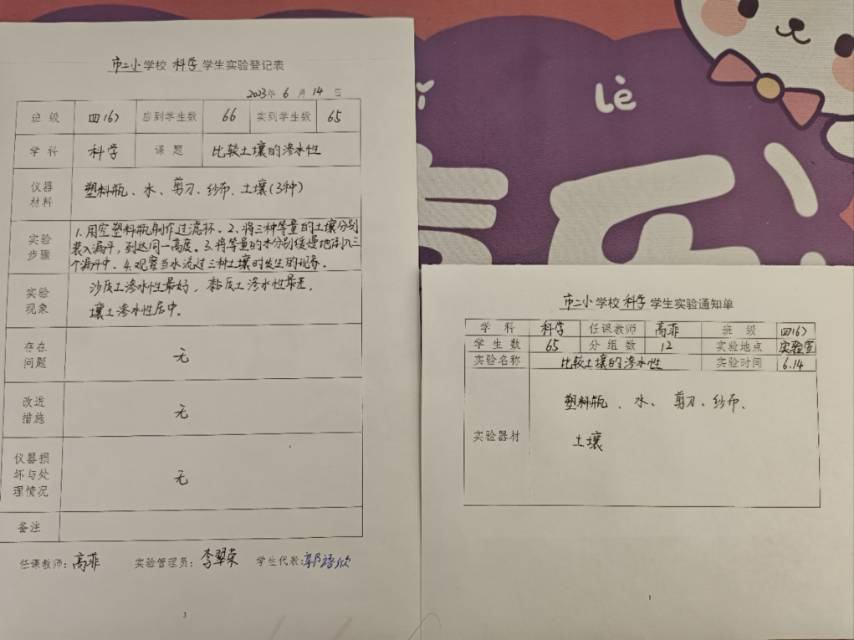 市二小学校 科学 学生实验登记表
2023年 6 月 14 日
班 级 四(6) 应到学生数 66 实到学生数 65
学 科 科学 课 题 比较土壤的渗水性
仪器材料 塑料瓶、水、剪刀、纱布、土壤(3种)
实验步骤 1.用空塑料瓶制作过滤杯。2、将三种等量的土壤分别
装入漏斗,到达同一高度。3.将等量的水分别缓慢地倒入三
个漏斗中。4.观察当水流过三种土壤时发生的现象。
实验现象 沙质土渗水性最好,黏质土渗水性最差,
壤土渗水性居中。
存在问题 无
改进措施 无
仪器损坏与处理情况 无
备注
任课教师:高菲 实验管理员:李翠荣 学生代表:
3
lè
市二小学校 科学 学生实验通知单
学 科 科学 任课教师 高菲 班 级 四(6)
学 生 数 65 分 组 数 12 实验地点 实验室
实验名称 比较土壤的渗水性 实验时间 6.14
实验器材 塑料瓶、水、剪刀、纱布、
土壤
1